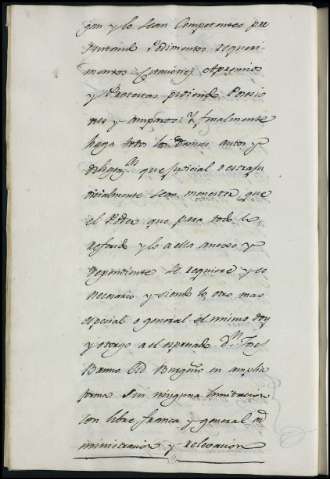 gan y lo sean Competentes pre
sentando Pedimentos requeri
mientos Citaciones Apremios
y Protestas pidiendo Posesio
nes y amparos y finalmente
haga todos los demas autos y
diligen.as que judicial o estraju
dicialmente sean menester que
el Poder que para todo lo
referido y lo a ello anexo y
dependiente se requiere y es
necesario y siendo lo otro mas
especial o general el mismo doy
y otorgo a el espresado D.n Jose
en amplia
forma Sin ninguna limitacion
con libre, franca y general ad
ministracion y relevacion